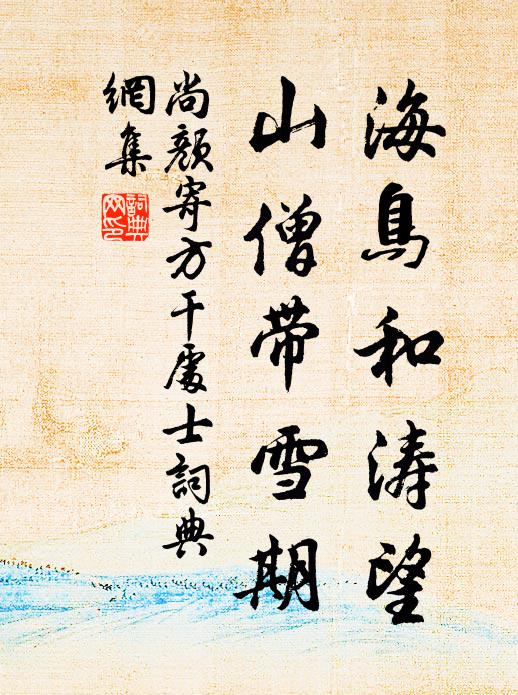 海鳥和濤望
山僧帶雪期
尚顏寄方干處士詞典
網集
詞典
网印